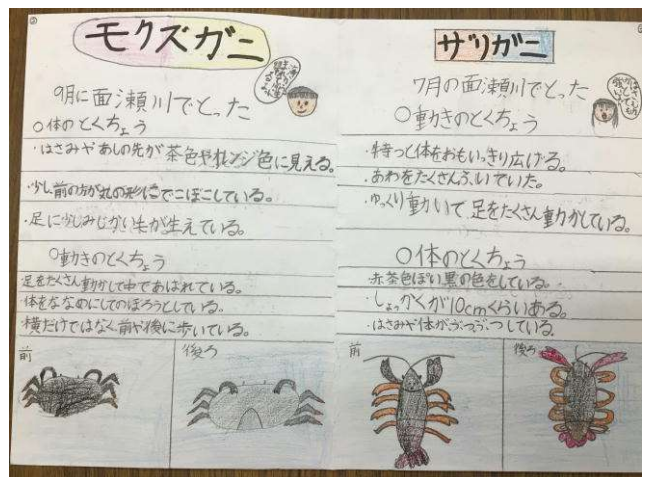 モクズガニ
9月に面瀬川でとった
○体のとくちょう
・はさみやあしの先が茶色やオレンジ色に見える。
・少し前の方が丸の形にでこぼこしている。
・足に少しみじかい毛が生えている。
○動きのとくちょう
足をたくさん動かして中であばれている。
体をななめにしてのぼろうとしている。
横だけではなく前や後に歩いている。
前
後ろ
ザリガニ
7月の面瀬川でとった
○動きのとくちょう
・持つと体をおもいっきり広げる。
・あわをたくさんふいていた。
・ゆっくり動いて足をたくさん動かしている。
○体のとくちょう
赤茶色ぽい黒の色をしている。
・しょっかくが10cmくらいある。
・はさみや体がぶつぶつしている
前
後ろ